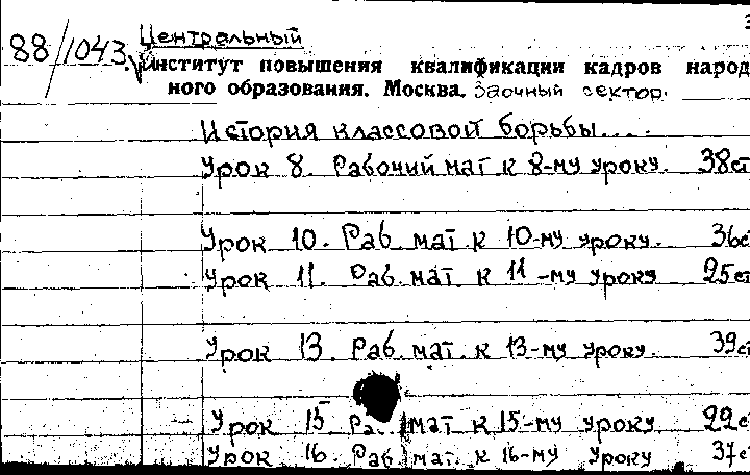 88/1043. Центральный
Институт повышения квалификации кадров народ
ного образования. Москва. Заочный сектор.
История классовой борьбы....
Урок 8. Рабочий мат к 8-му уроку. 38ст
Урок 10. Раб мат к 10-му уроку. 36с
Урок 11. Раб. мат. к 11-му уроку 25ст
Урок 13. Раб. мат. к 13-му уроку. 39ст
Урок 15 Ра. мат к 15-му уроку 22с
Урок 16. Раб. мат. к 16-му уроку 37с